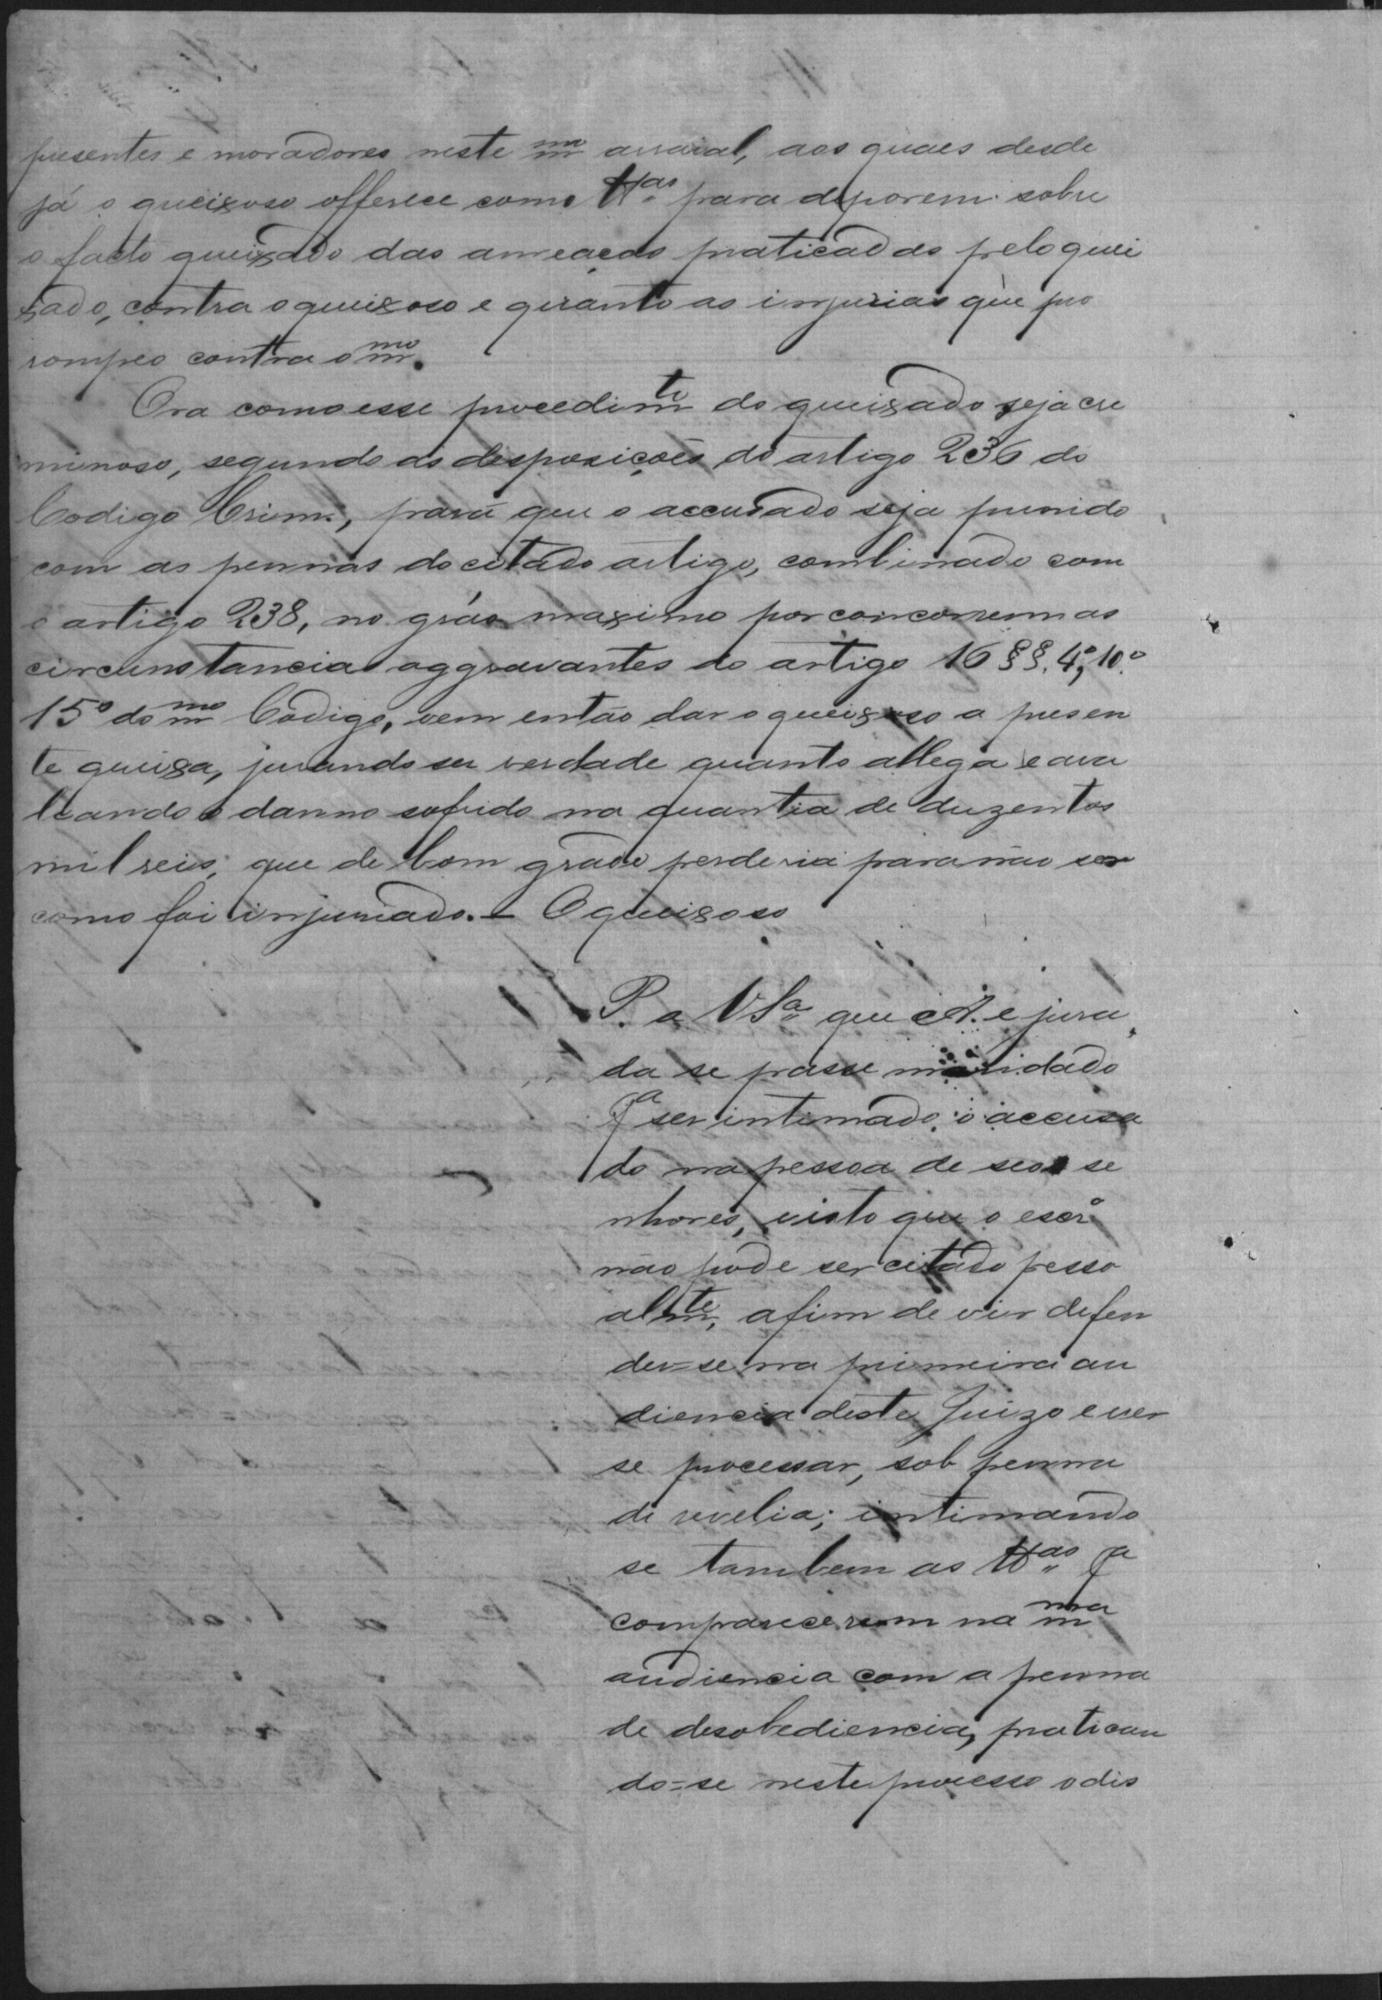 presentes e moradores neste mmo arraial, aos quaes desde
já o queixoso offerece como ttas para deporem sobre
o facto queixado das ameaças praticadas pelo quei
xado, contra o queixoso e quanto as injurias que pro
rompeo contra o mmo.
Ora como esse procedimte do queixado seja cre
minoso, segundo as desposições do artigo 236 do
Codigo Crim., para que o accusado seja punido
com as pennas do citado artigo, combinado com
o artigo 238, no gráo maximo por concorrem as
circunstancias aggravantes do artigo 16 §§. 4º, 10º
15º do mmo Codigo, vem então dar o queixoso a presen
te queixa, jurando ser verdade quanto allega e ava
liando o danno sofrido na quantia de duzentos
mil reis, que de bom grado perderia para não ser
como foi injuriado. – O queixoso
P. a VSa que A. e jura
da se passe mandado
pa ser intimado o accusa
do na pessoa de seos se
nhores, visto que o escro
não pode ser citado pesso
almte, afim de vir defen
der=se na primeira au
diencia deste Juizo e ver
se processar, sob penna
de revelia; intimando
se tambem as ttas pa
comparecerem na mma
audiencia com a penna
de desobediencia, pratican
do=se neste processo o dis